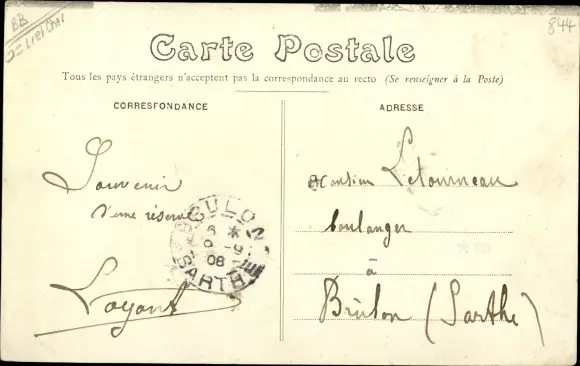 BB
844
Carte Postale
Tous les pays étrangers n'acceptent pas la correspondance au recto (Se renseigner à la Poste)
CORRESPONDANCE
ADRESSE
Souvenir
d'une réserve
Loyant
BRULON
6 *
9 -9
08
SARTHE
Monsieur Letourneau
boulanger
à
Brûlon (Sarthe)